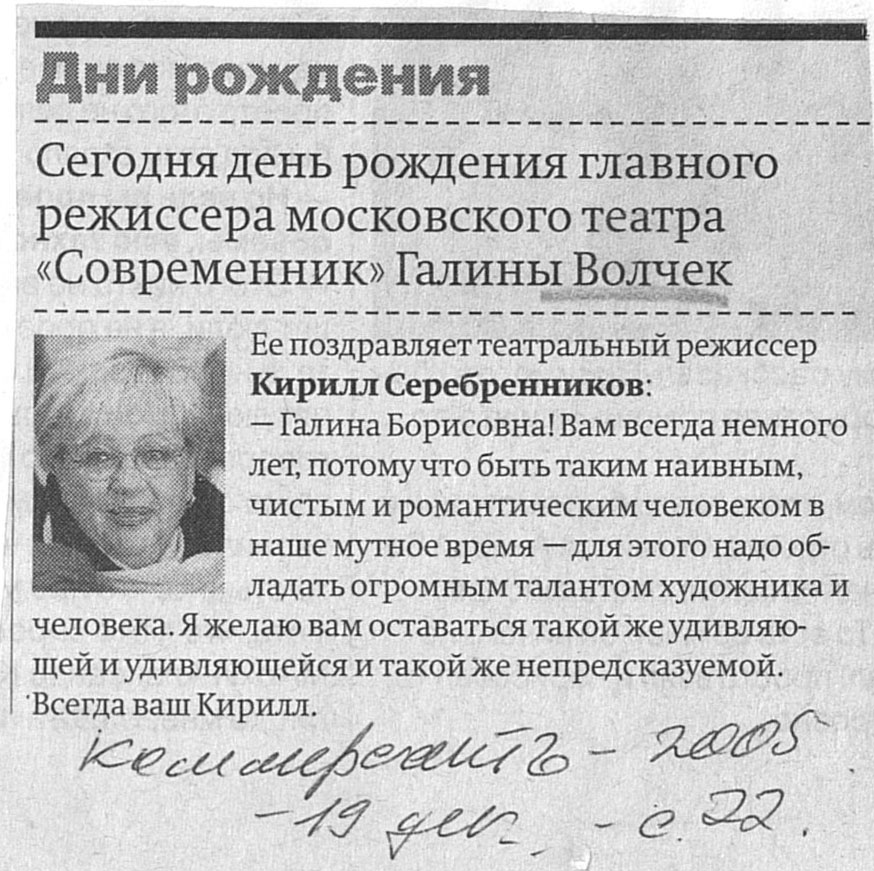 Дни рождения
Сегодня день рождения главного
режиссера московского театра
«Современник» Галины Волчек
Ее поздравляет театральный режиссер
Кирилл Серебренников:
— Галина Борисовна! Вам всегда немного
лет, потому что быть таким наивным,
чистым и романтическим человеком в
наше мутное время — для этого надо об-
ладать огромным талантом художника и
человека. Я желаю вам оставаться такой же удивляю-
щей и удивляющейся и такой же непредсказуемой.
Всегда ваш Кирилл.
Коммерсантъ – 2005
– 19 дек. – с. 22.